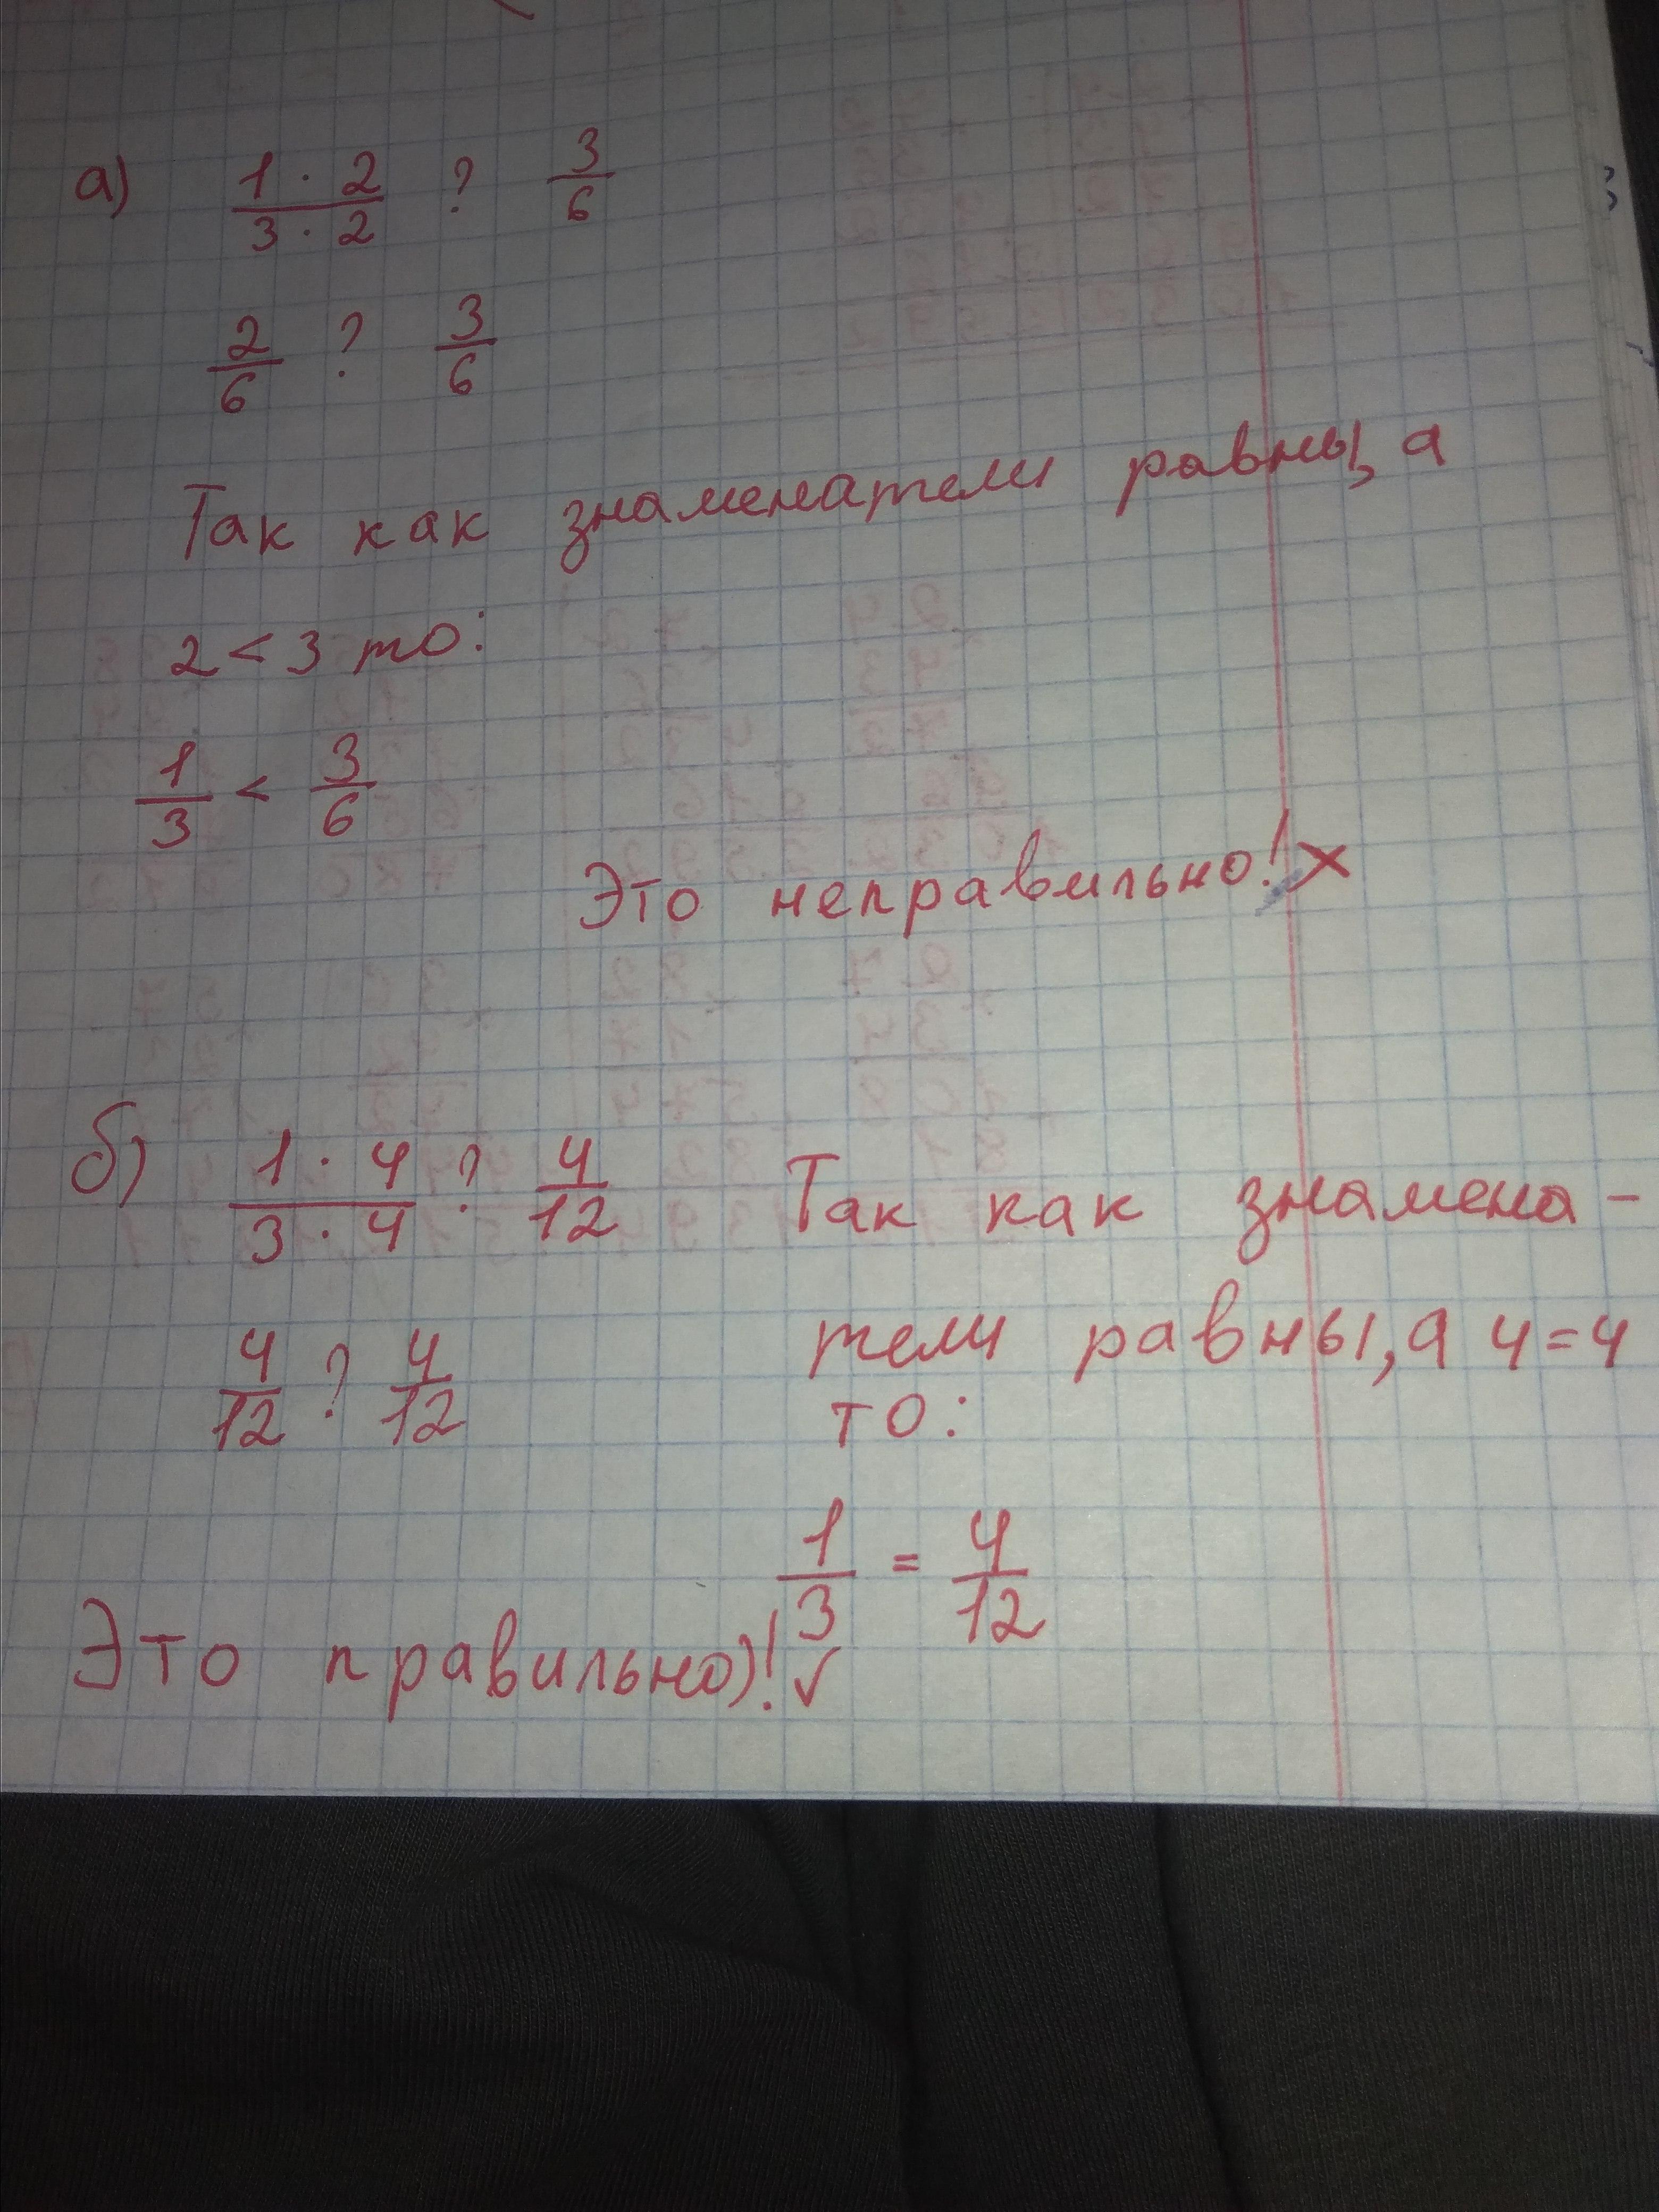 а) 1 · 2 / 3 · 2 ? 3/6
2/6 ? 3/6
Так как знаменатели равны, а
2 < 3 то:
1/3 < 3/6
Это неправильно! ×
б) 1 · 4 / 3 · 4 ? 4/12
4/12 ? 4/12
Так как знамена-
тели равны, а 4 = 4
то:
1/3 = 4/12
Это правильно)! ✓